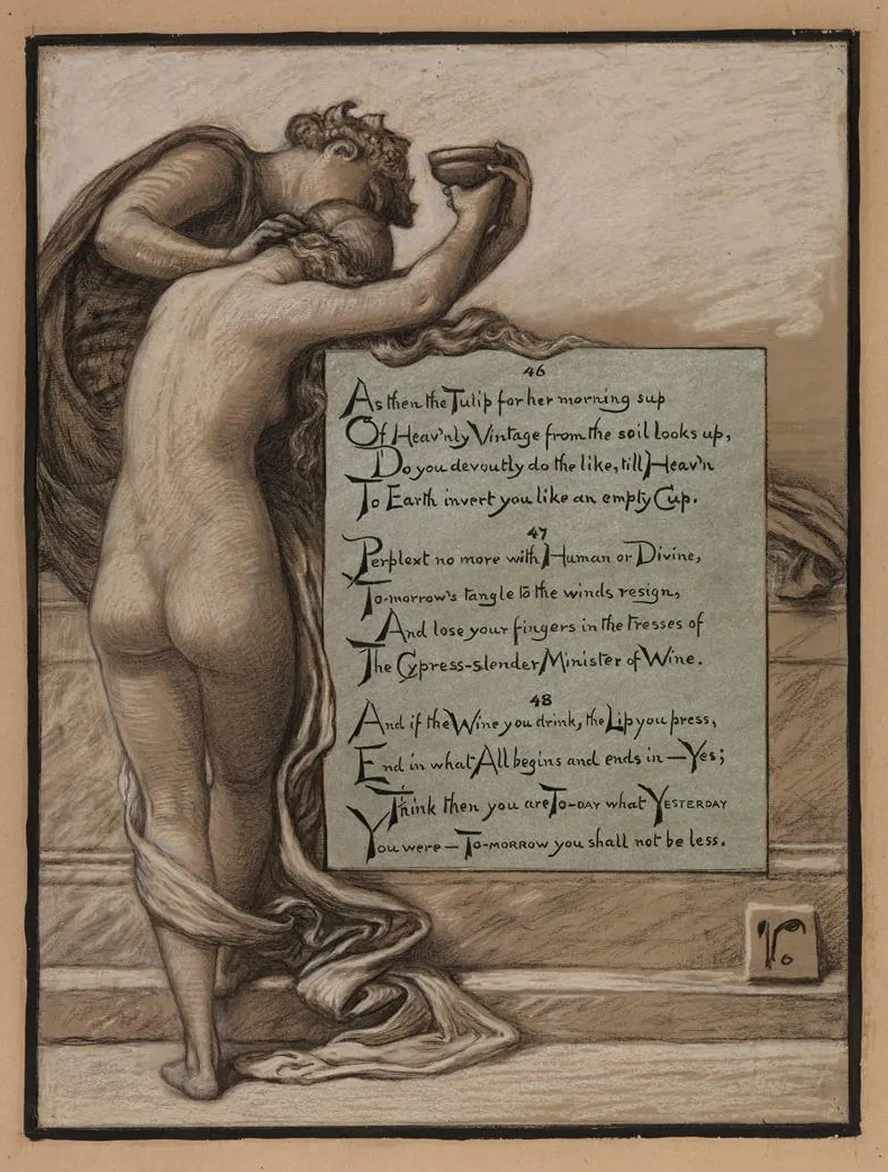 46
As then the Tulip for her morning sup
Of Heav'nly Vintage from the soil looks up,
Do you devoutly do the like, till Heav'n
To Earth invert you like an empty Cup.
47
Perplext no more with Human or Divine,
To-morrow's tangle to the winds resign,
And lose your fingers in the tresses of
The Cypress-slender Minister of Wine.
48
And if the Wine you drink, the Lip you press,
End in what All begins and ends in — Yes;
Think then you are To-DAY what YESTERDAY
You were — To-MORROW you shall not be less.